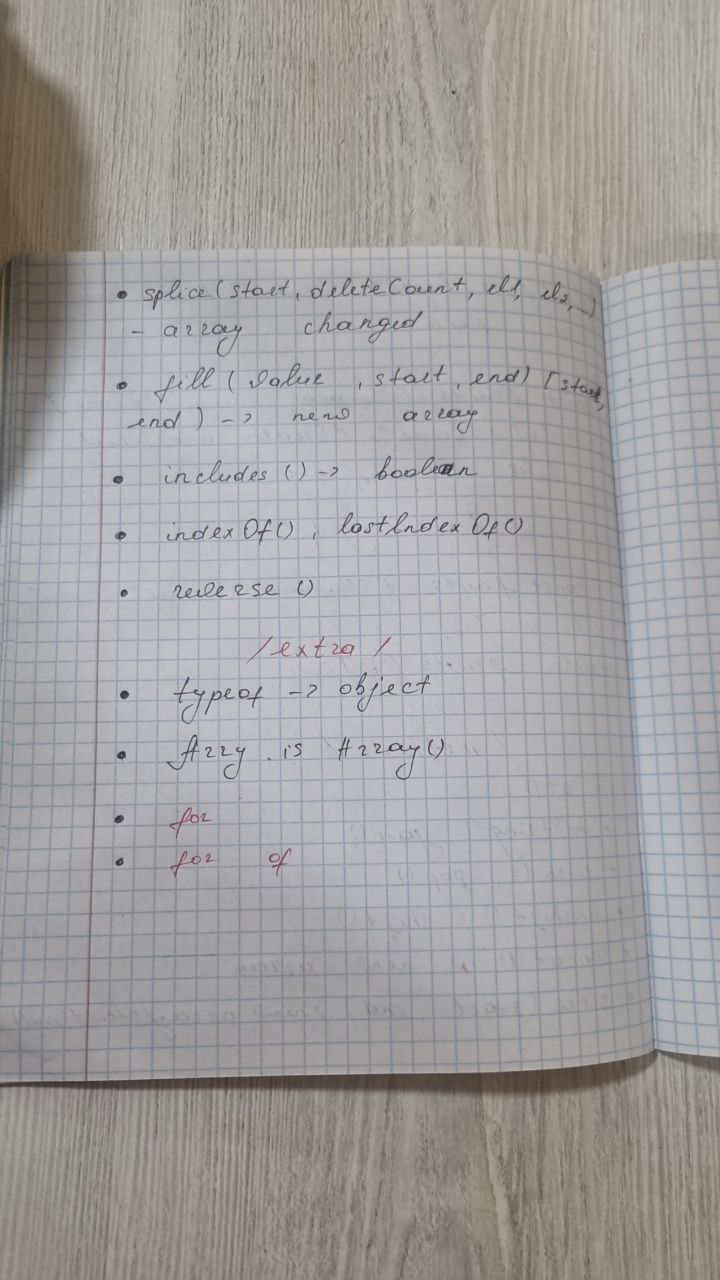 • splice (start, deleteCount, el1, el2, ...)
- array changed
• fill (value, start, end) [start,
end) -> new array
• includes () -> boolean
• indexOf(), lastIndexOf()
• reverse ()
/extra/
• typeof -> object
• Arry . is Array()
• for
• for of